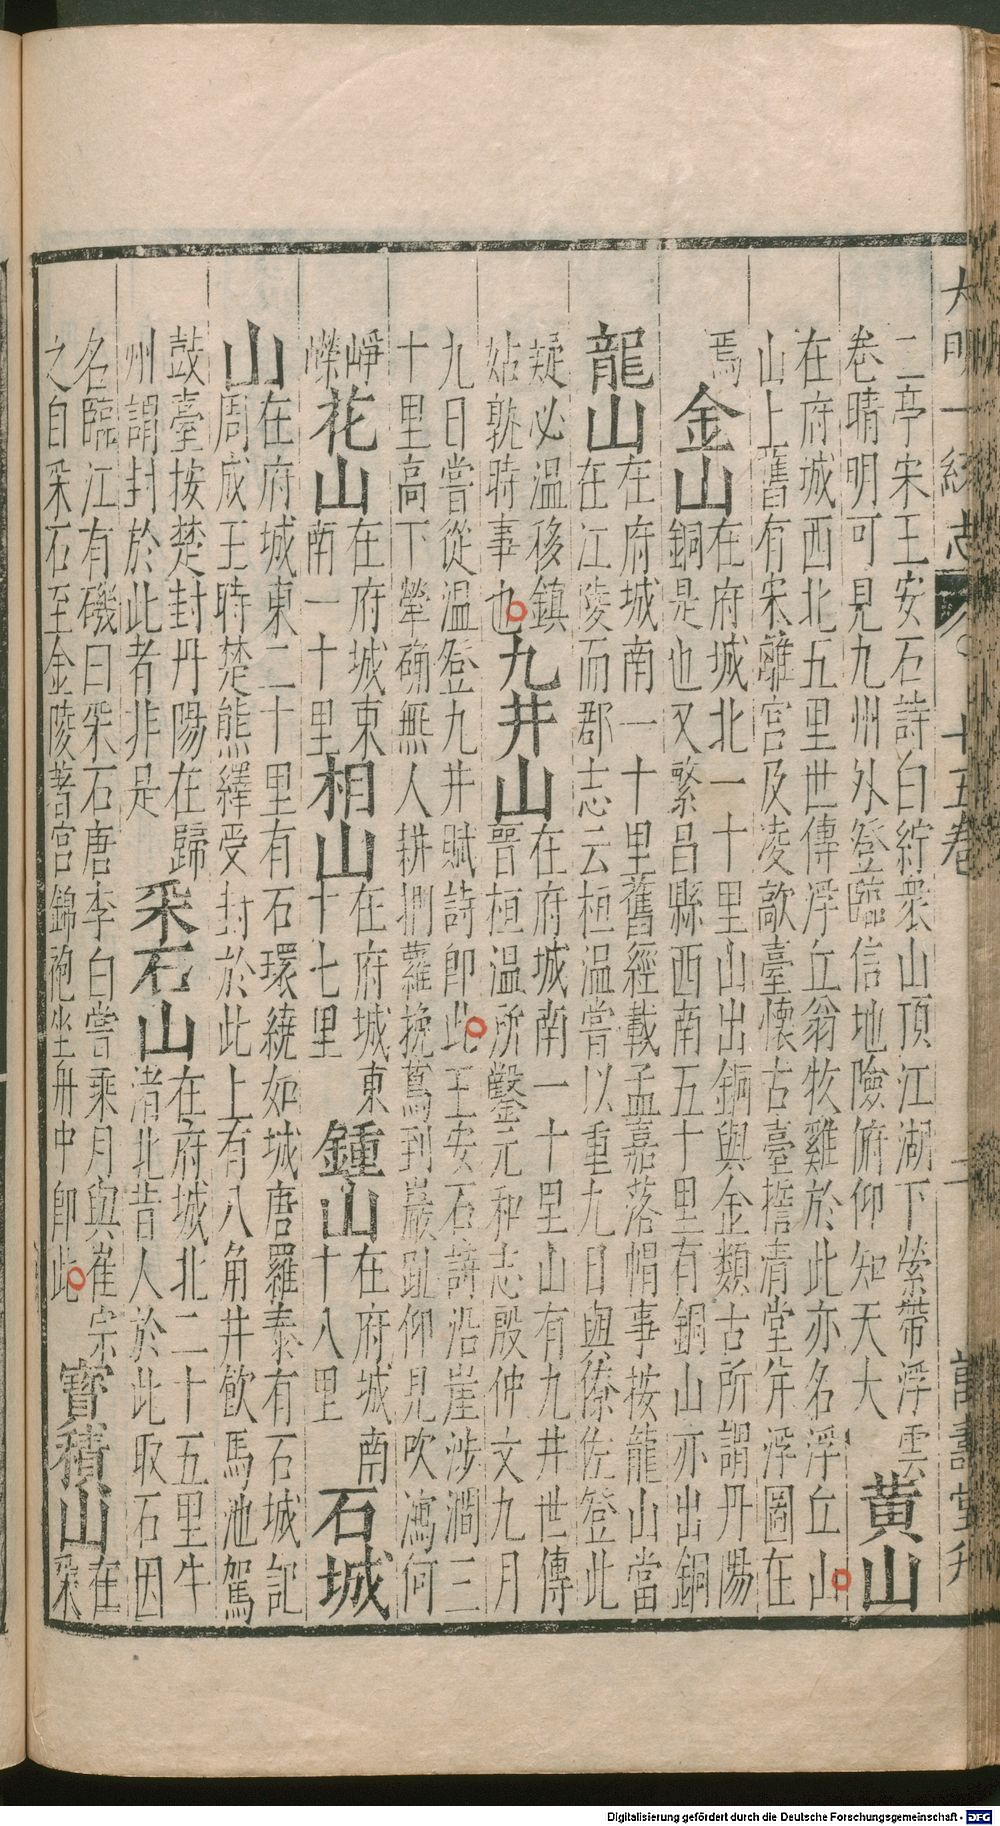 大明一統志 十五卷 二 萬壽堂刊
二亭宋王安石詩白紵衆山頂江湖下縈帶浮雲
卷晴明可見九州外登臨信地險俯仰知天大
黃山
在府城西北五里世傳浮丘翁牧雞於此亦名浮丘山
山上舊有宋離宮及凌歊臺懷古臺清堂浮圖在
焉
金山
在府城北一十里山出銅與金類古所謂丹陽
銅是也又繁昌縣西南五十里有銅山亦出銅
龍山
在府城南一十里舊經載孟嘉落帽事按龍山當
在江陵而郡志云桓溫嘗以重九日與僚佐登此
疑必溫移鎮
姑孰時事也
九井山
在府城南一十里山有九井世傳
晉桓溫所鑿元和志殷仲文九月
九日嘗從溫登九井賦詩即此王安石詩沿崖涉澗三
十里高下犖确無人耕捫蘿挽蔦到巖趾仰見吹鴻何
崢
嶸
花山
在府城東
南一十里
相山
在府城東
十七里
鍾山
在府城南
十八里
石城
山
在府城東二十里有石環繞如城唐羅泰有石城記
周成王時楚熊繹受封於此上有八角井飲馬池駕
鼓臺按楚封丹陽在歸
州謂封於此者非是
采石山
在府城北二十五里牛
渚北昔人於此取石因
名臨江有磯曰采石唐李白嘗乘月與崔宗
之自采石至金陵著宮錦袍坐舟中即此
寶積山
在
采
Digitalisierung gefördert durch die Deutsche Forschungsgemeinschaft - DFG